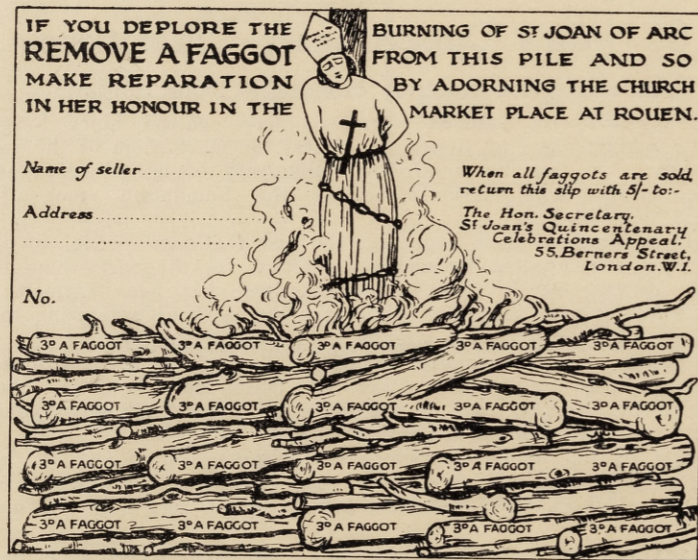 IF YOU DEPLORE THE BURNING OF ST JOAN OF ARC
REMOVE A FAGGOT FROM THIS PILE AND SO
MAKE REPARATION BY ADORNING THE CHURCH
IN HER HONOUR IN THE MARKET PLACE AT ROUEN.
Name of seller
Address
No.
When all faggots are sold,
return this slip with 5/- to:-
The Hon. Secretary,
St Joan's Quincentenary
Celebrations Appeal.
55, Berners Street,
London. W.1.
3D A FAGGOT 3D A FAGGOT 3D A FAGGOT 3D A FAGGOT 3D A FAGGOT
3D A FAGGOT 3D A FAGGOT 3D A FAGGOT 3D A FAGGOT 3D A FAGGOT
3D A FAGGOT 3D A FAGGOT 3D A FAGGOT 3D A FAGGOT 3D A FAGGOT
3D A FAGGOT 3D A FAGGOT 3D A FAGGOT 3D A FAGGOT 3D A FAGGOT